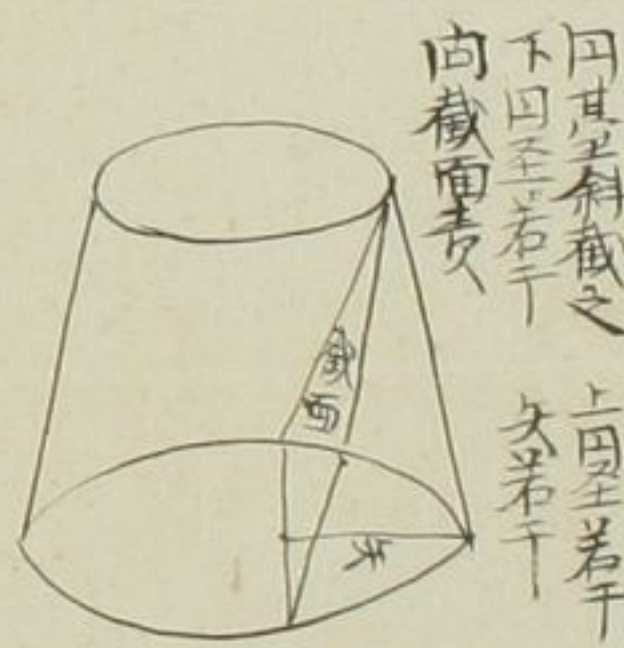 円䑓斜截之 上円圣若干
下円圣若干 矢若干
問截面責
截面
矢